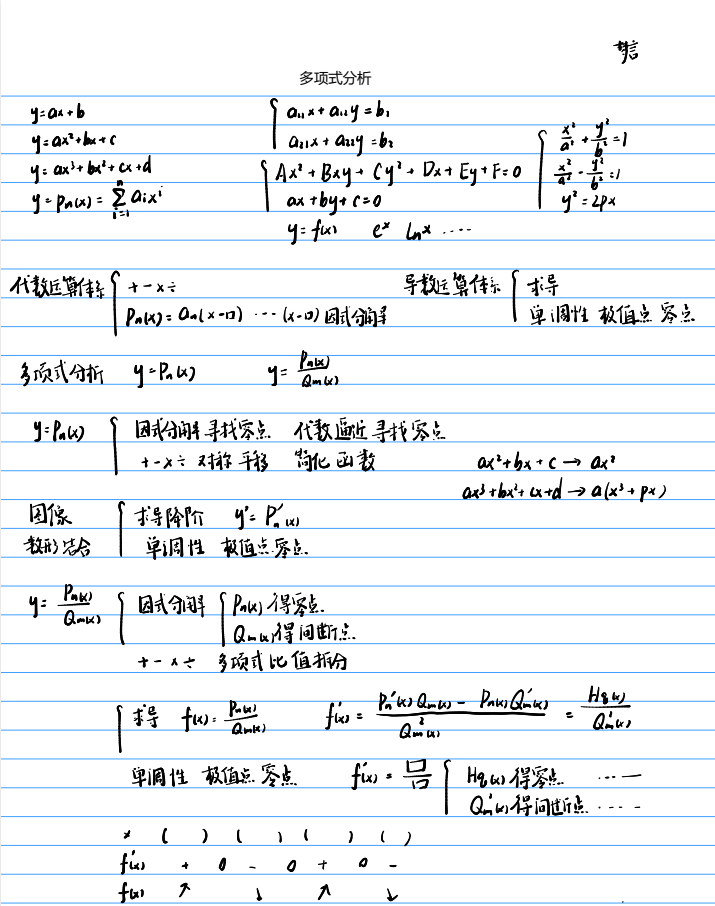 多项式分析
y=ax+b
y=ax²+bx+c
y=ax³+bx²+cx+d
y=Pn(x)=∑ⁿᵢ₌₁ aᵢxⁱ
{ a₁₁x+a₁₂y=b₁
a₂₁x+a₂₂y=b₂
{ Ax²+Bxy+Cy²+Dx+Ey+F=0
ax+by+c=0
y=f(x) eˣ lnx ····
{ x²/a²+y²/b²=1
x²/a²-y²/b²=1
y²=2px
代数运算体系 { +-×÷
Pn(x)=an(x-□)···(x-□)因式分解
导数运算体系 { 求导
单调性 极值点 零点
多项式分析 y=Pn(x) y=Pn(x)/Qm(x)
y=Pn(x) { 因式分解寻找零点 代数逼近寻找零点
+-×÷ 对称平移 简化函数 ax²+bx+c→ax²
ax³+bx²+cx+d→a(x³+px)
图像 { 求导降阶 y'=P'n(x)
数形结合 单调性 极值点零点
y=Pn(x)/Qm(x) { 因式分解 { Pn(x)得零点
Qm(x)得间断点
+-×÷ 多项式比值拆分
{ 求导 f(x)=Pn(x)/Qm(x) f'(x)=P'n(x)Qm(x)-Pn(x)Q'm(x)/Q²m(x)=Hq(x)/Q'm(x)
单调性 极值点 零点 f'(x)=□/□ { Hq(x)得零点 ···—
Q'm(x)得间断点 ····
x ( ) ( ) ( ) ( )
f'(x) + 0 - 0 + 0 -
f(x) ↗ ↓ ↗ ↓